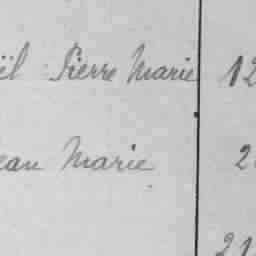 ël Pierre Marie 12
ean Marie 2
21